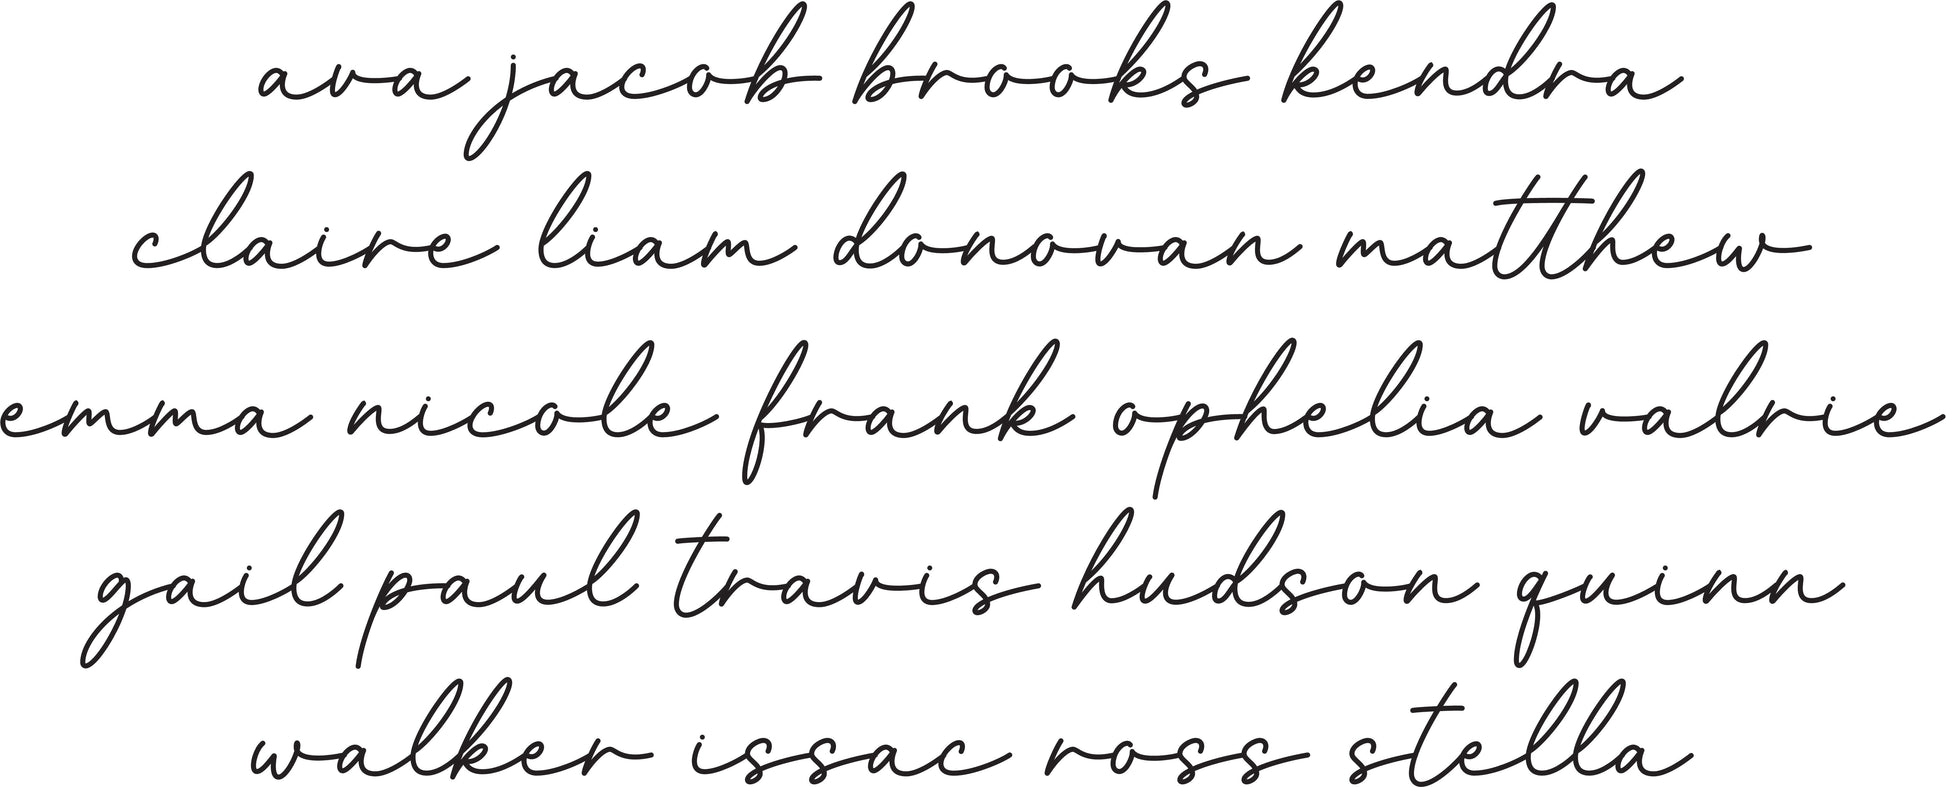 ava jacob brooks kendra
claire liam donovan matthew
emma nicole frank ophelia valrie
gail paul travis hudson quinn
walker issac ross stella